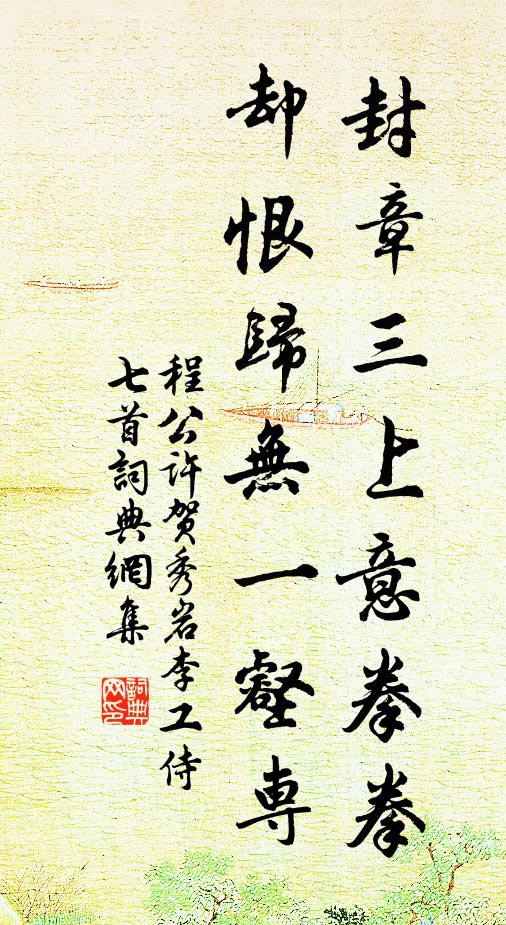 封章三上意拳拳
却恨歸無一壑專
程公許賀秀岩李工侍
七首詞典網集
詞典網印